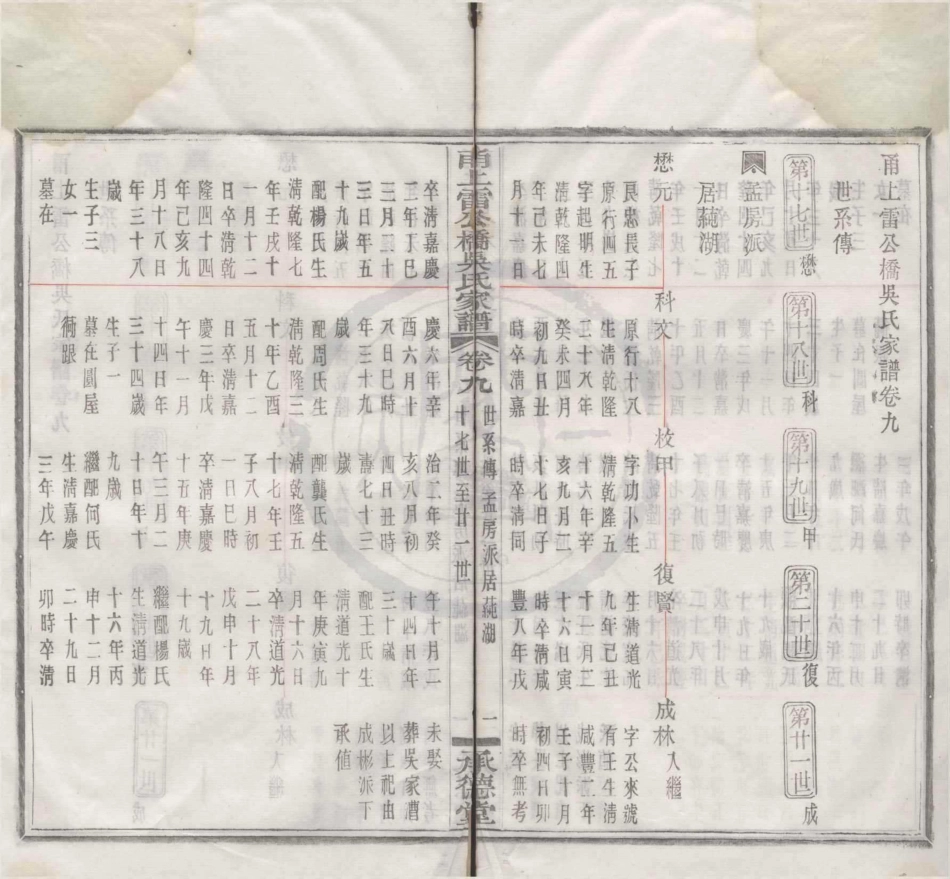 甬上雷公橋吳氏家譜卷九
世系傳
第十七世 懋
第十八世 科
第十九世 甲
第二十世 復
第廿一世 成
孟房派
居蒓湖
懋元
艮忠長子
原行四五
字起明生
清乾隆四
年己未七
月十一日
卒清嘉慶
二年丁巳
三月二十
三日年五
十九歲
配楊氏生
清乾隆七
年壬戌十
一月十二
日卒清乾
隆四十四
年己亥九
月十八日
年三十八
歲
生子三
女一
墓在
科文
原行十八
生清乾隆
二十八年
癸未四月
初九日丑
時卒清嘉
慶六年辛
酉六月十
六日巳時
年三十九
歲
配周氏生
清乾隆三
十年乙酉
五月十二
日卒清嘉
慶三年戊
午十一月
十四日年
三十四歲
生子一
墓在圓屋
衕跟
校甲
字功小生
清乾隆五
十六年辛
亥九月二
十七日子
時卒清同
治二年癸
亥八月初
四日丑時
壽七十三
歲
配龔氏生
清乾隆五
十七年壬
子八月初
一日巳時
卒清嘉慶
十五年庚
午三月二
十日年十
九歲
繼配何氏
生清嘉慶
三年戊午
復賢
生清道光
九年己丑
一月二
十六日寅
時卒清咸
豐八年戊
午十月二
十四日年
三十歲
配王氏生
清道光十
年庚寅九
月十六日
卒清道光
二十八年
戊申十月
十九日年
十九歲
繼配楊氏
生清道光
十六年丙
申十二月
二十九日
卯時卒清
成林 入繼
字公來號
有壬生清
咸豐二年
壬子十月
初四日卯
時卒無考
未娶
葬吳家漕
以上祀由
成彬派下
承值
甬上雷公橋吳氏家譜 卷九
世系傳 孟房派居蒓湖
十七世至廿一世
一
承德堂